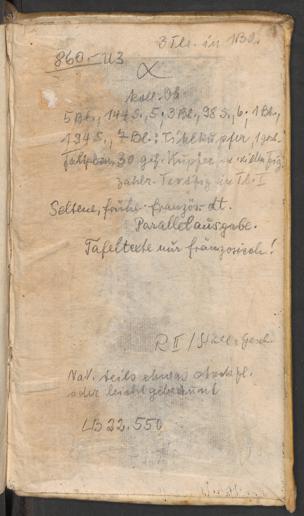 3 Tle. in 1 Bd.
860.- U3
Koll. Ok.
5 Bl., 147 S., 5; 3 Bl., 98 S., 6; 1 Bl.,
194 S., 7 Bl.; Titelkupfer, 1 gest.
30 gef. Kupfer
zahlr. Textfig. in Tl. I
Seltene, frühe französ.-dt.
Parallelausgabe.
Tafeltexte nur französisch!
R II /
NaV. teils etwas stockfl.
oder leicht gebräunt
LB 22.550